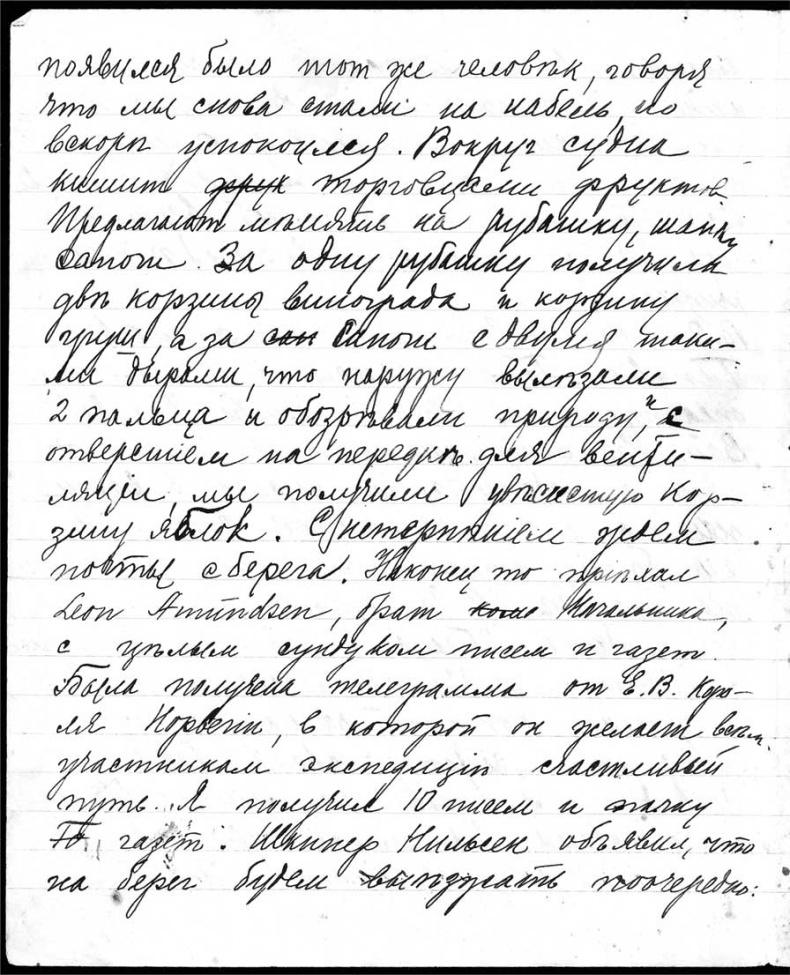 появился было тот же человѣк, говоря
что мы снова стали на кабель, но
вскорѣ успокоился. Вокруг судна
кишит фрук торговцами фруктов
Предлагают мѣнять на рубашку, шапку
сапоги. За одну рубашку получила
двѣ корзины винограда и корзину
груш, а за сап сапоги с двумя таки-
ми дырами, что наружу вылѣзали
2 пальца и обозрѣвали природу, и с
отверстіем на передкѣ для венти-
ляціи, мы получили увѣсистую кор-
зину яблок. С нетерпѣніем ждем
почты с берега. Наконец то пріѣхал
Leon Amundsen, брат Начальника,
с цѣлым сундуком писем и газет.
Была получена телеграмма от Е. В. Коро-
ля Норвегіи, в которой он желает всѣм
участникам экспедиціи счастливый
путь. Я получил 10 писем и пачку
газет. Шкипер Нильсен объявил, что
на берег будем выѣзжать поочередно: